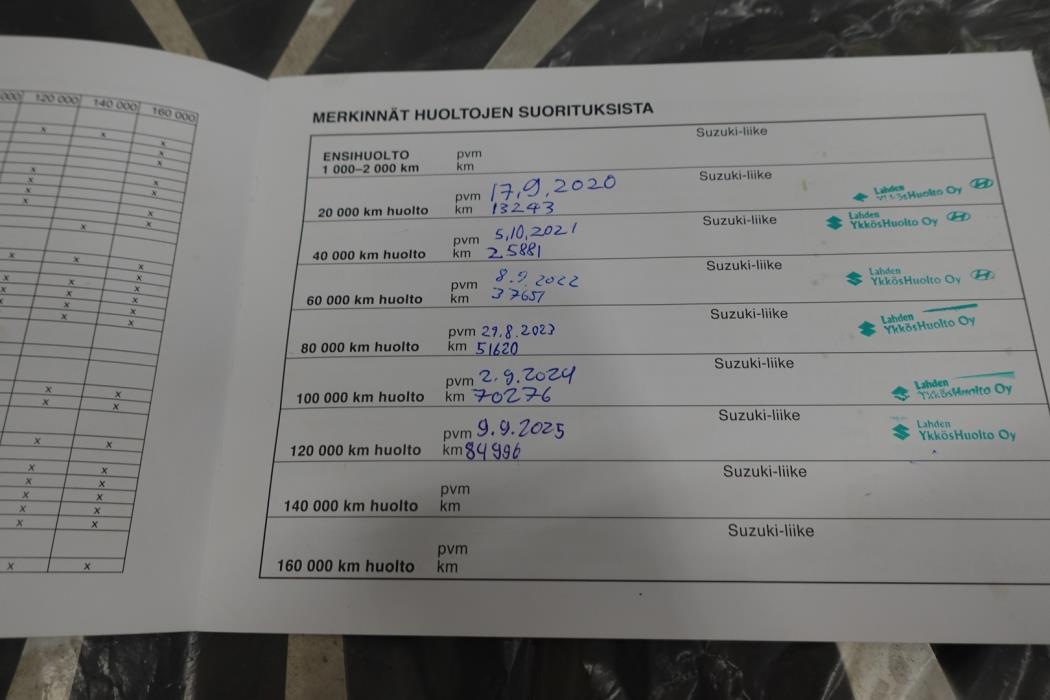 000 120 000 140 000 160 000
MERKINNÄT HUOLTOJEN SUORITUKSISTA
ENSIHUOLTO pvm Suzuki-liike
1 000–2 000 km km
pvm 17.9.2020 Suzuki-liike Lahden
20 000 km huolto km 13243 YkkösHuolto Oy
pvm 5.10.2021 Suzuki-liike Lahden
40 000 km huolto km 25881 YkkösHuolto Oy
pvm 8.9.2022 Suzuki-liike Lahden
60 000 km huolto km 37651 YkkösHuolto Oy
pvm 29.8.2023 Suzuki-liike Lahden
80 000 km huolto km 51620 YkkösHuolto Oy
pvm 2.9.2024 Suzuki-liike Lahden
100 000 km huolto km 70276 YkkösHuolto Oy
pvm 9.9.2025 Suzuki-liike Lahden
120 000 km huolto km 84996 YkkösHuolto Oy
pvm Suzuki-liike
140 000 km huolto km
pvm Suzuki-liike
160 000 km huolto km